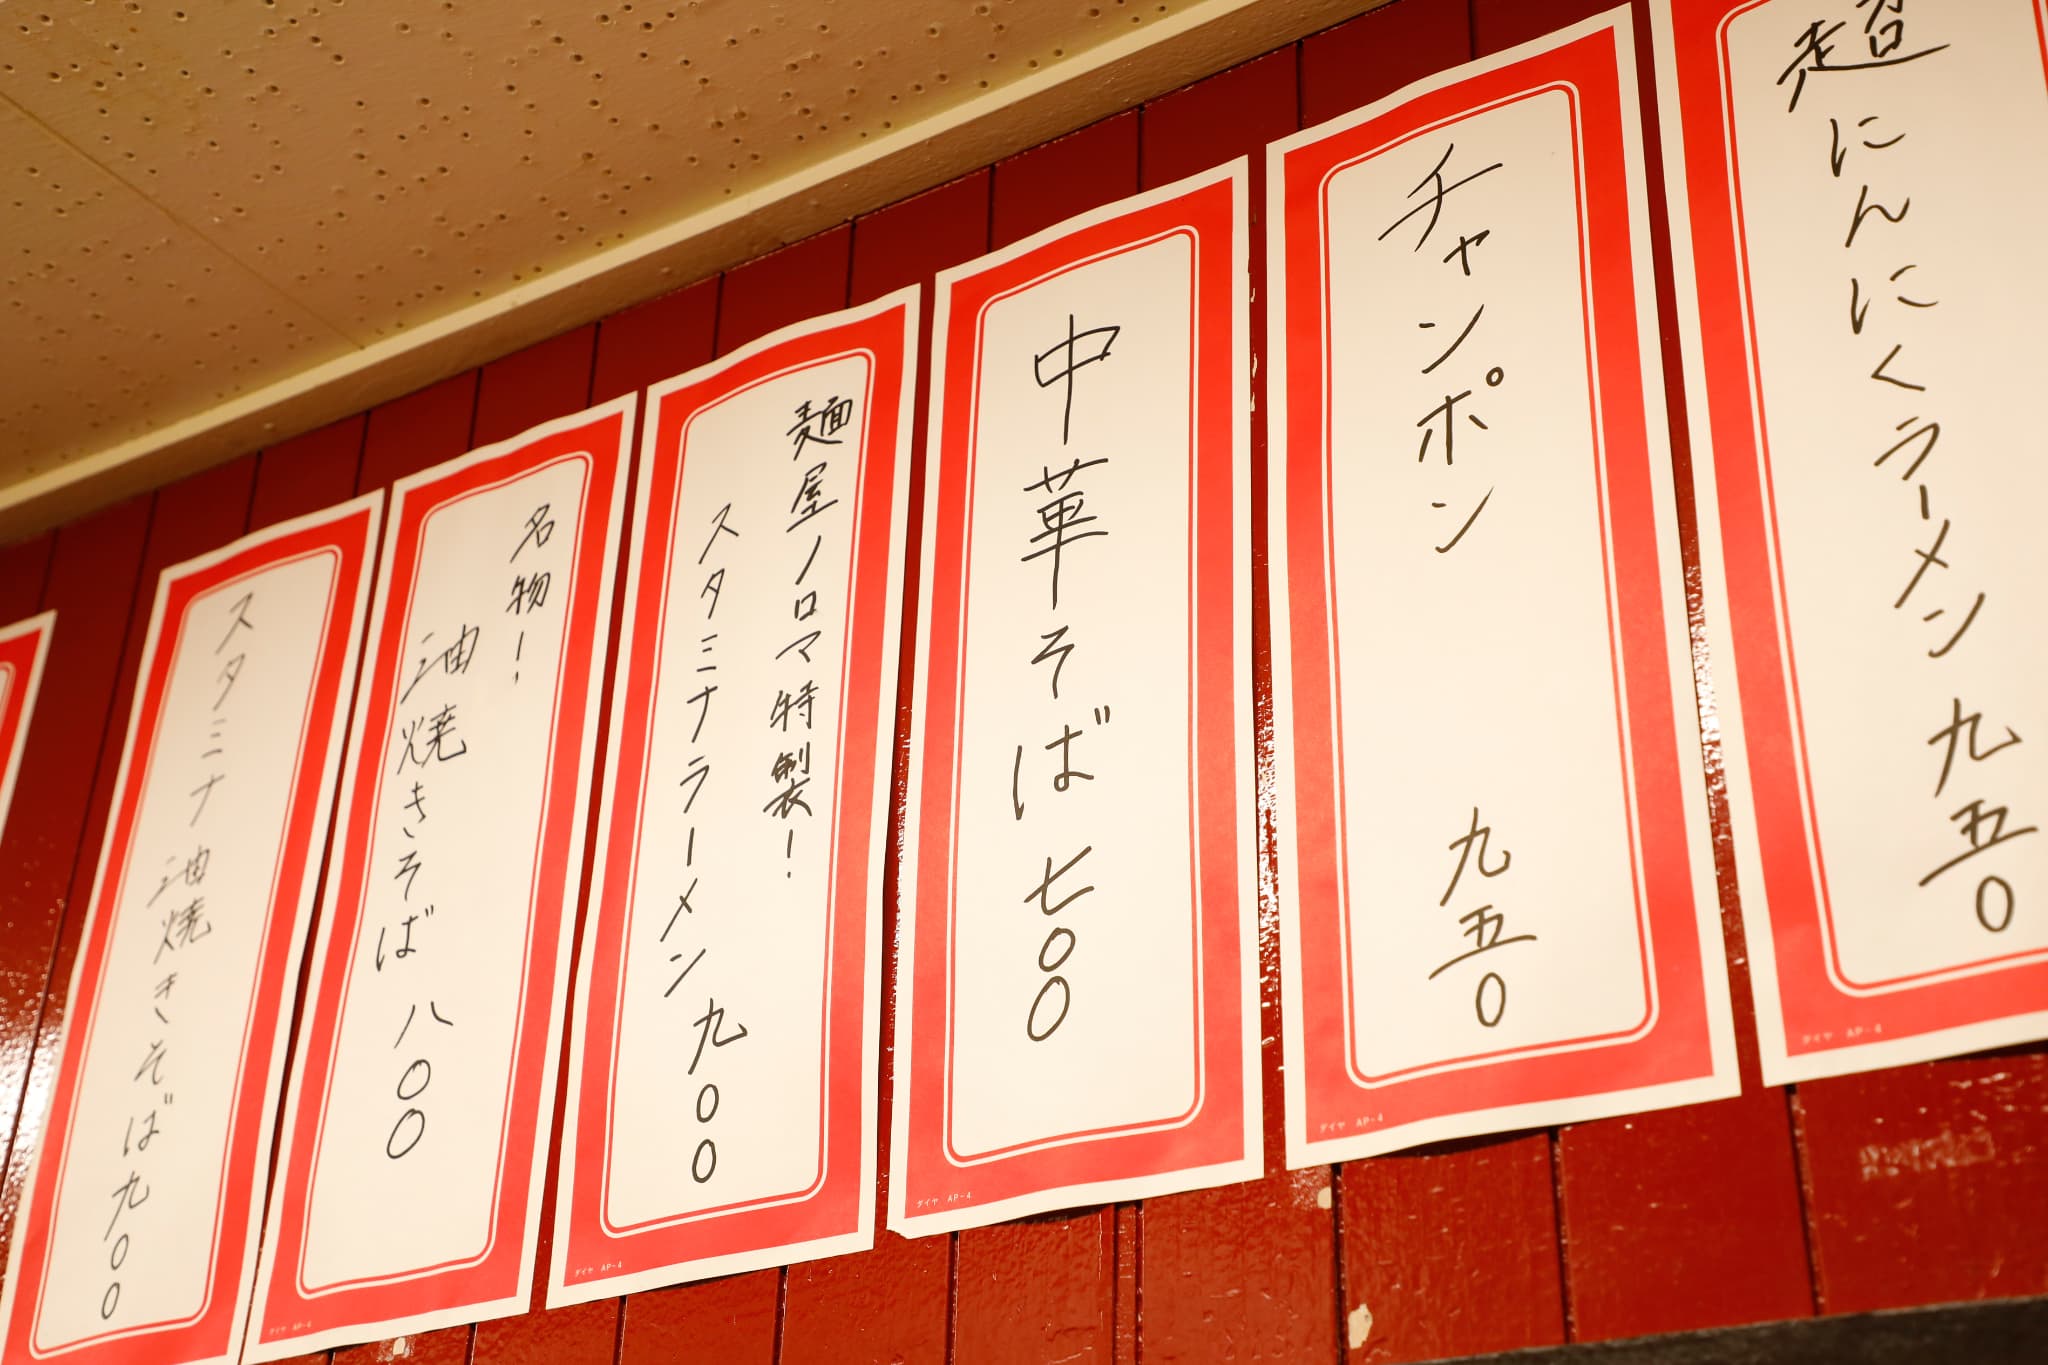 超にんにくラーメン 九五〇
チャンポン 九五〇
中華そば 七〇〇
麺屋ノロマ特製！
スタミナラーメン 九〇〇
名物！
油焼きそば 八〇〇
スタミナ油焼きそば 九〇〇
ダイヤ AP-4
ダイヤ AP-4
ダイヤ AP-4
ダイヤ AP-4
ダイヤ AP-4